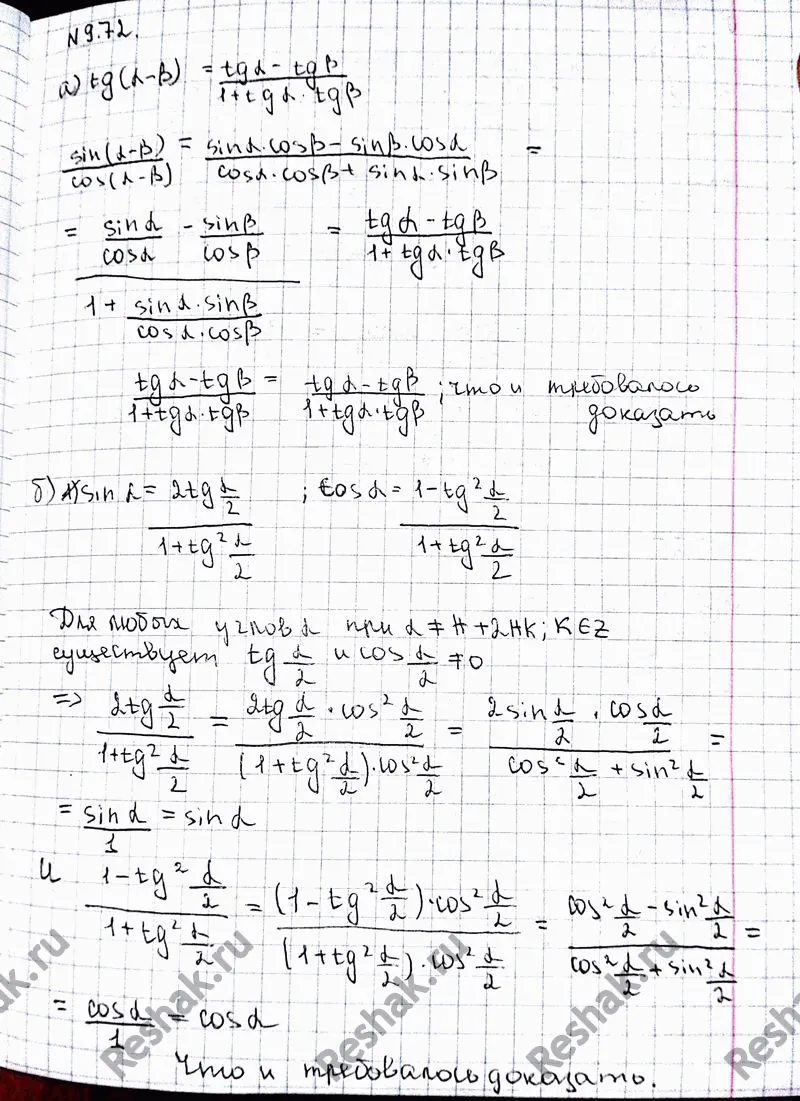 N 9.72.
а) tg(α-β) = (tgα - tgβ)/(1+tgα·tgβ)
sin(α-β)/cos(α-β) = (sinα·cosβ - sinβ·cosα)/(cosα·cosβ + sinα·sinβ) =
= (sinα/cosα - sinβ/cosβ)/(1 + (sinα·sinβ)/(cosα·cosβ)) = (tgα - tgβ)/(1+tgα·tgβ)
(tgα-tgβ)/(1+tgα·tgβ) = (tgα-tgβ)/(1+tgα·tgβ) ; что и требовалось
доказать
б) sin α = (2tg α/2)/(1+tg² α/2) ; cos α = (1-tg² α/2)/(1+tg² α/2)
Для любых углов α при α ≠ π + 2πk; k∈Z
существует tg α/2 и cos α/2 ≠ 0
=> (2tg α/2)/(1+tg² α/2) = (2tg α/2 · cos² α/2)/((1+tg² α/2)·cos² α/2) = (2sin α/2 · cos α/2)/(cos² α/2 + sin² α/2) =
= sin α/1 = sin α
и (1-tg² α/2)/(1+tg² α/2) = ((1-tg² α/2)·cos² α/2)/((1+tg² α/2)·cos² α/2) = (cos² α/2 - sin² α/2)/(cos² α/2 + sin² α/2) =
= cos α/1 = cos α
Что и требовалось доказать.
Reshak.ru
Reshak.ru
Reshak.ru
Reshak.ru